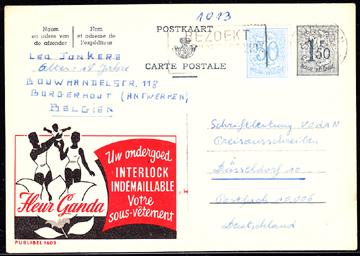 1013
POSTKAART
CARTE POSTALE
Naam
en adres van
de afzender
Nom
et adresse de
l'expéditeur
BEZOEKT
50
1F50
LEO JONKERS
BOUWHANDELSTR, 118
BORGERHOUT (ANTWERPEN)
BELGIEN
Schriftleitung
Preisausschreiben
Düsseldorf 10
Postfach 10,006
Deutschland
Uw ondergoed
INTERLOCK
INDEMAILLABLE
Votre
sous-vêtement
Fleur Ganda
PUBLIBEL 1603